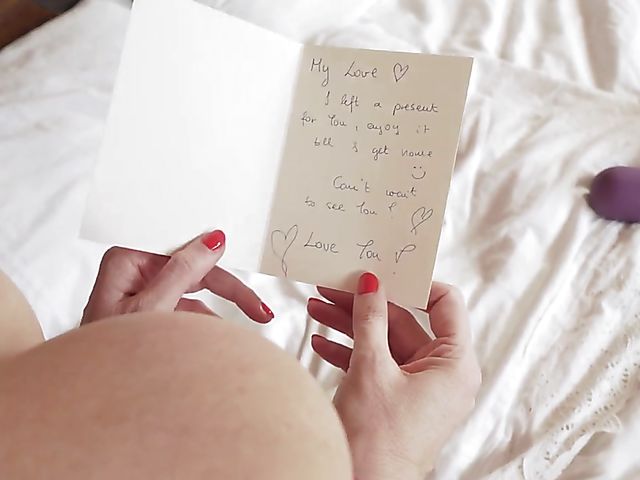 My Love ♡
I left a present
for You, enjoy it
till I get home
☺
Can't wait
to see You! ♡
♡ Love You !